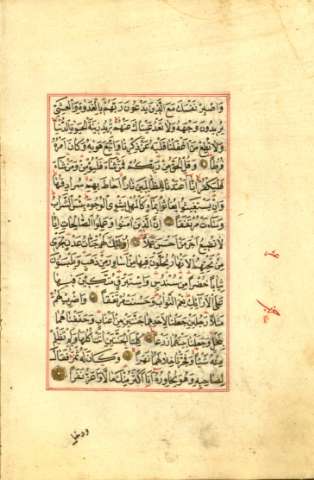 واصبر نفسك مع الذين يدعون ربهم بالغدوة والعشي
يريدون وجهه ولا تعد عيناك عنهم تريد زينة الحيوة الدنيا
ولا تطع من اغفلنا قلبه عن ذكرنا واتبع هويه وكان امره
فرطا وقل الحق من ربكم فمن شاء فليؤمن ومن شاء
فليكفر انا اعتدنا للظالمين نارا احاط بهم سرادقها
وان يستغيثوا يغاثوا بماء كالمهل يشوي الوجوه بئس الشراب
وساءت مرتفقا ان الذين امنوا وعملوا الصالحات انا
لا نضيع اجر من احسن عملا اولئك لهم جنات عدن تجري
من تحتهم الانهار يحلون فيها من اساور من ذهب ويلبسون
ثيابا خضرا من سندس واستبرق متكئين فيها
على الارائك نعم الثواب وحسنت مرتفقا واضرب لهم
مثلا رجلين جعلنا لاحدهما جنتين من اعناب وحففناهما
بنخل وجعلنا بينهما زرعا كلتا الجنتين اتت اكلها ولم تظلم
منه شيئا وفجرنا خلالهما نهرا وكان له ثمر فقال
لصاحبه وهو يحاوره انا اكثر منك مالا واعز نفرا
ودخل